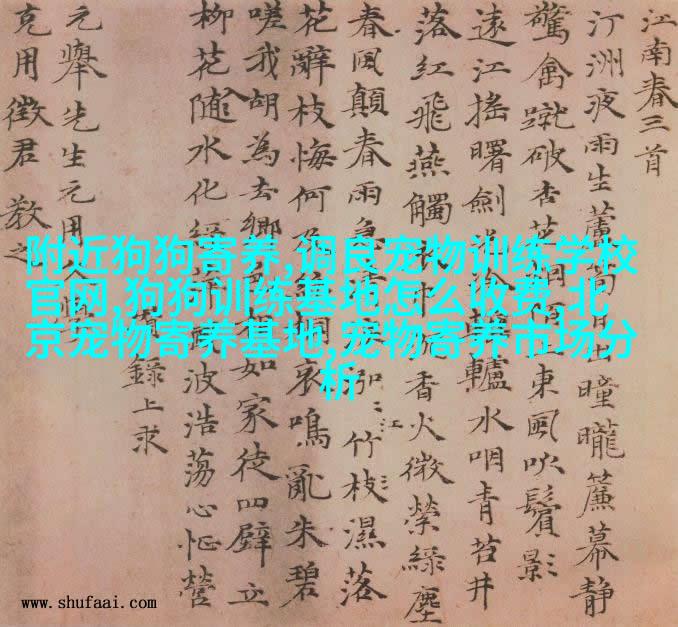 江南春三首
汀洲夜雨生蘆曈曨簾幕静
驚禽蹴破杏花東風吹鬢影
遠江搖曙劍轤水咽青苔井
落紅飛燕觸香火微縈綠塵
春風顛春雨急竹枝濕落
江
花辭枝悔何哀鳴亂朱碧
嗟我胡為去鄉如家徒四壁立
柳花隨水化波浩蕩心怔營
錄上求
元舉先生元用
克用徵君教之
附近狗狗寄养,调良宠物训练学校
官网,狗狗训练基地怎么收费,北
京宠物寄养基地,宠物寄养市场分
析
www.shufaai.com